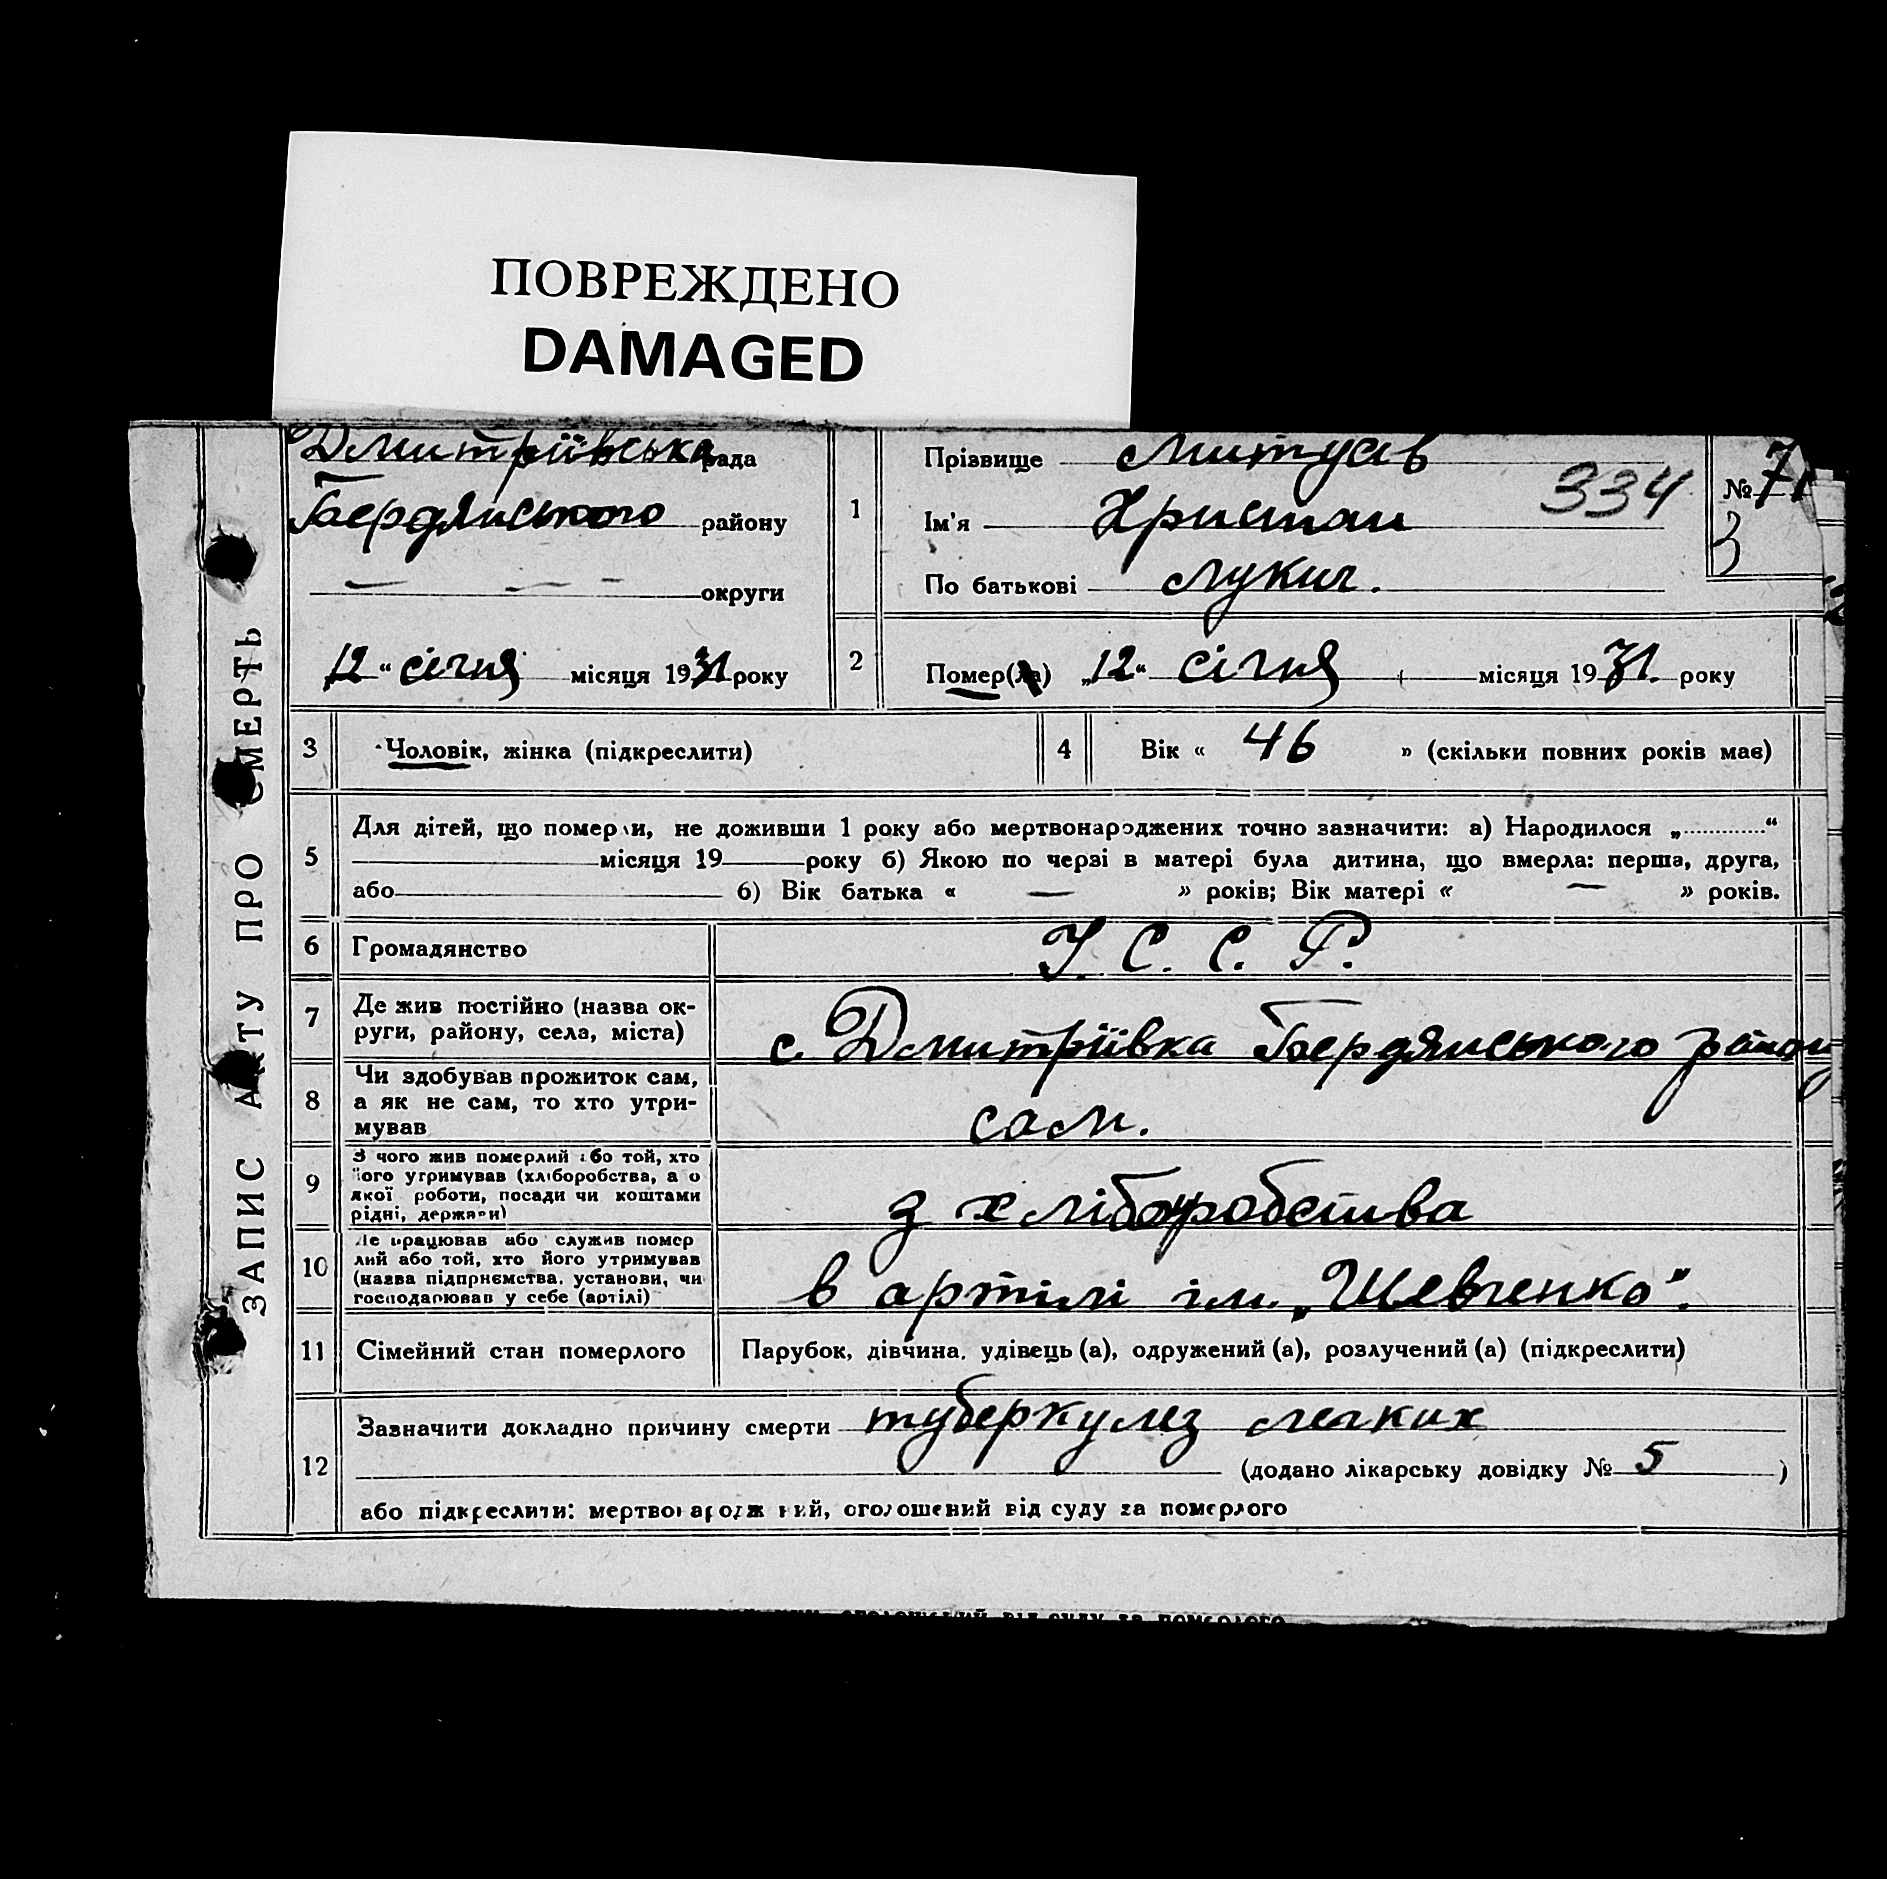 ПОВРЕЖДЕНО
DAMAGED
ЗАПИС АКТУ ПРО СМЕРТЬ
Дмитріївська рада
Бердянського району
— — — округи
12 “ січня місяця 1931 року
1
Прізвище
Ім'я Христан
По батькові Лукич.
334
№ 71
3
2
Помер(ла) „12“ січня місяця 1931. року
3 Чоловік, жінка (підкреслити)
4 Вік « 46 » (скільки повних років має)
5
Для дітей, що померли, не доживши 1 року або мертвонароджених точно зазначити: а) Народилося „ “
місяця 19 року б) Якою по черзі в матері була дитина, що вмерла: перша, друга,
або б) Вік батька « — » років; Вік матері « — » років.
6 Громадянство У. С. С. Р.
7
Де жив постійно (назва ок-
руги, району, села, міста)
с. Дмитріївка Бердянського району
8
Чи здобував прожиток сам,
а як не сам, то хто утри-
мував
сам.
9
З чого жив померлий або той, хто
його утримував (хліборобства, а о
якої роботи, посади чи коштами
рідні, держави)
з хліборобства
10
Де працював або служив помер
лий або той, хто його утримував
(назва підприємства, установи, чи
господарював у себе (артілі)
в артілі ім. „Шевченко“.
11 Сімейний стан померлого
Парубок, дівчина, удівець (а), одружений (а), розлучений (а) (підкреслити)
12
Зазначити докладно причину смерти туберкулез легких
(додано лікарську довідку № 5 )
або підкреслити: мертвонароджений, оголошений від суду за померлого
оголошений від суду за померлого